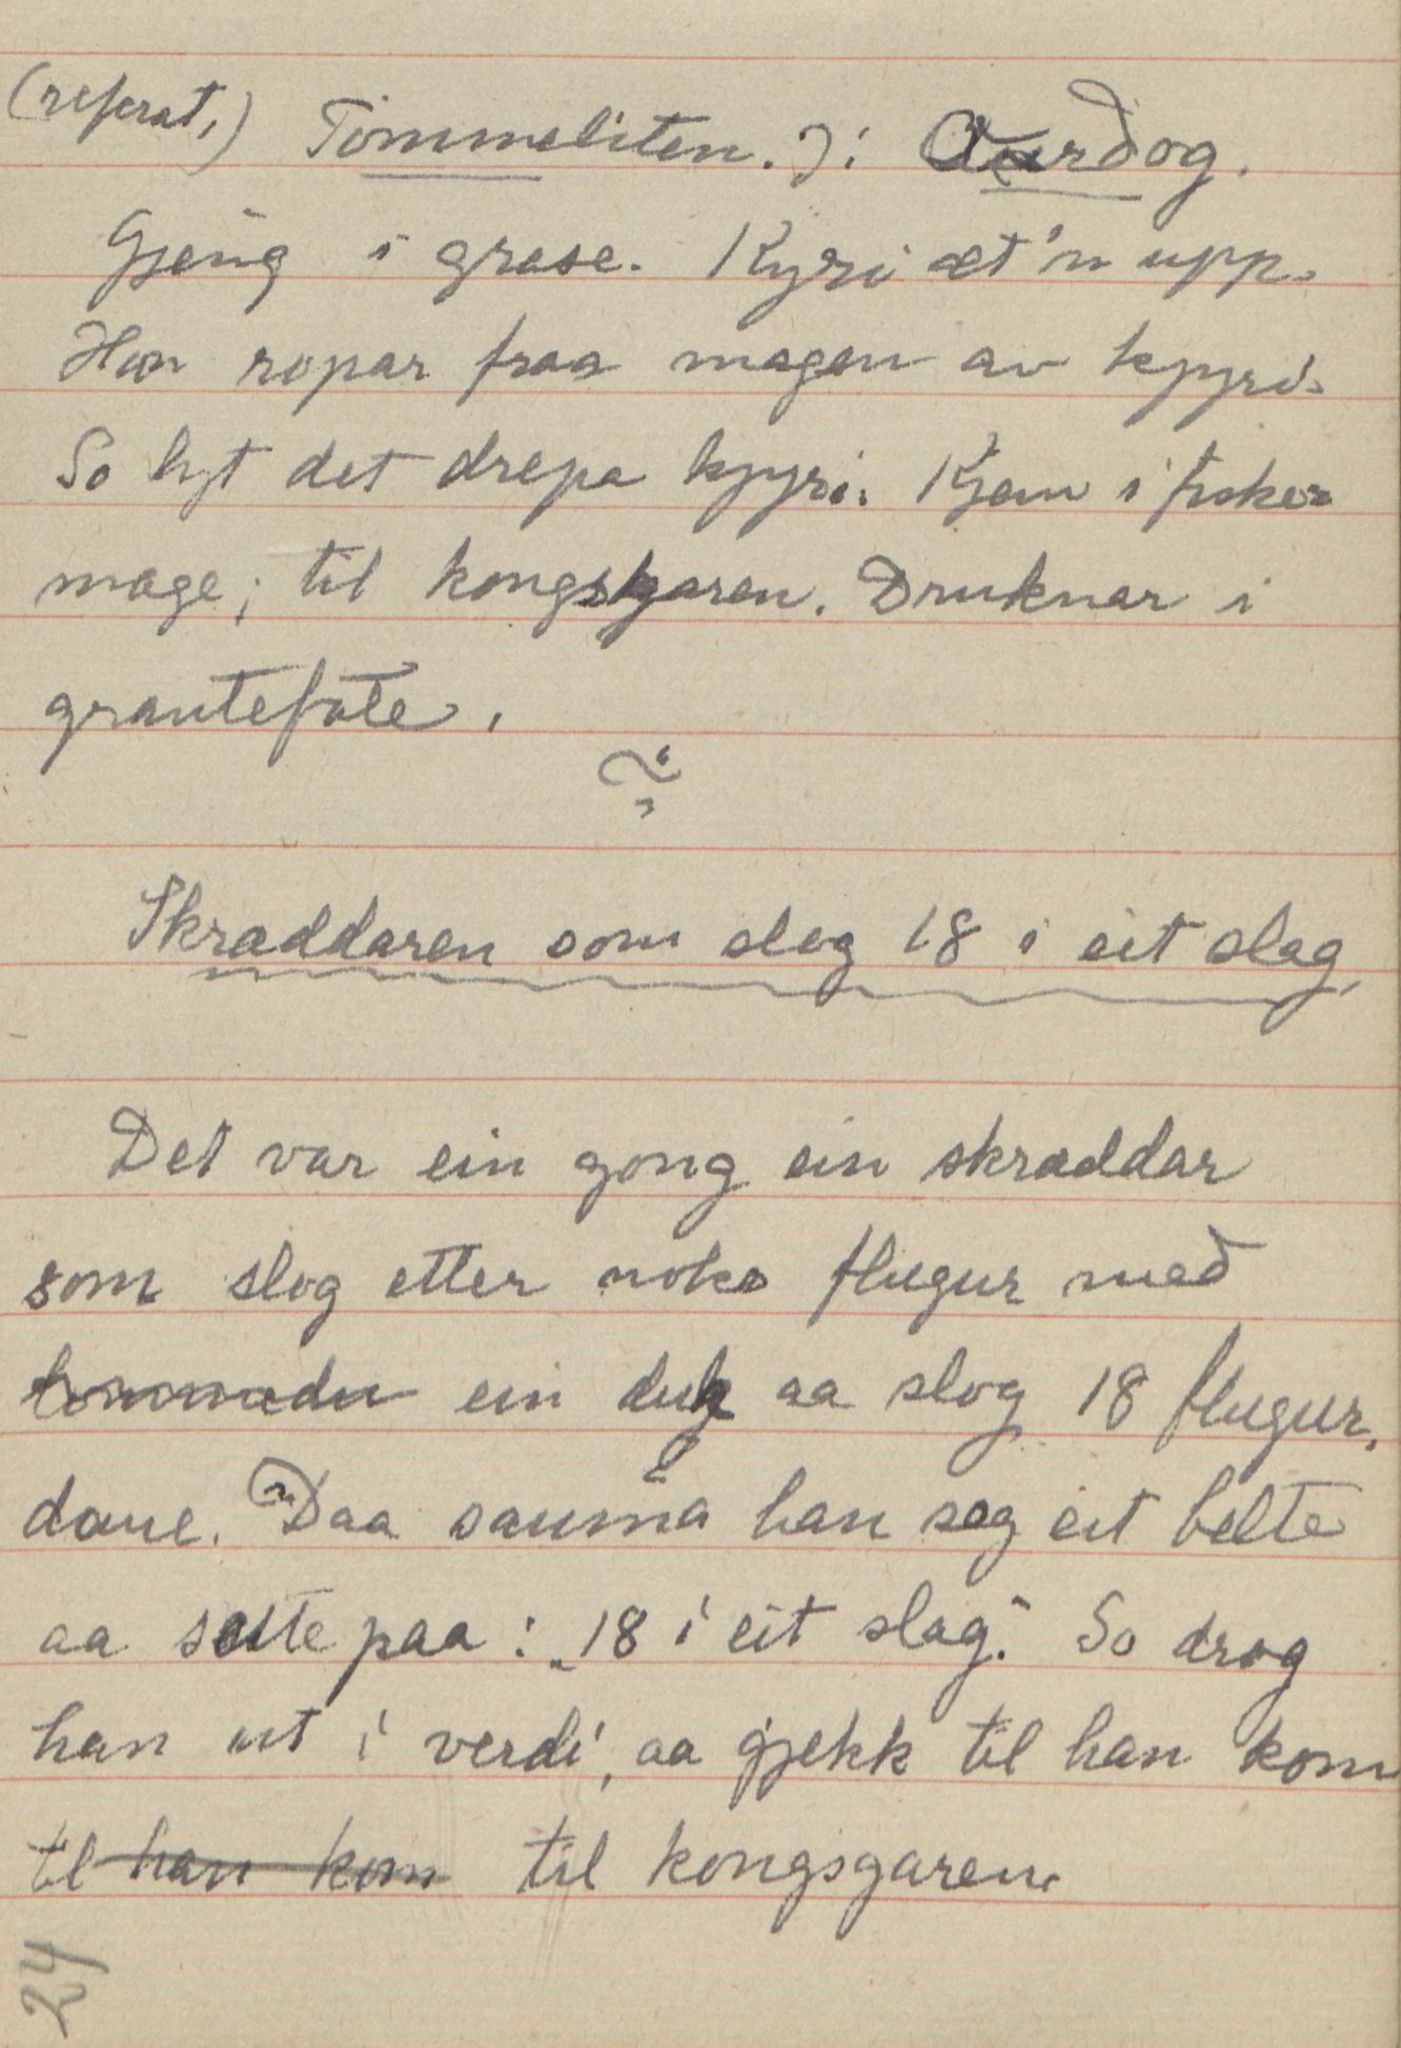 (referat,) Tommeliten. ɔ: Aurdog.
Gjeng i grase. Kyri æt'n upp.
Han ropar fraa magen av kjyri.
So lyt det drepa kjyri. Kjem i fiske-
mage; til kongsgaren. Druknar i
grautefate.
Skræddaren som slog 18 i eit slag,
Det var ein gong ein skræddar
som slog etter noko flugur med
ein duk aa slog 18 flugur,
daue. Daa sauma han seg eit belte
aa sette paa: „18 i eit slag". So drog
han ut i verdi, aa gjekk til han kom
til han kom til kongsgaren.
24